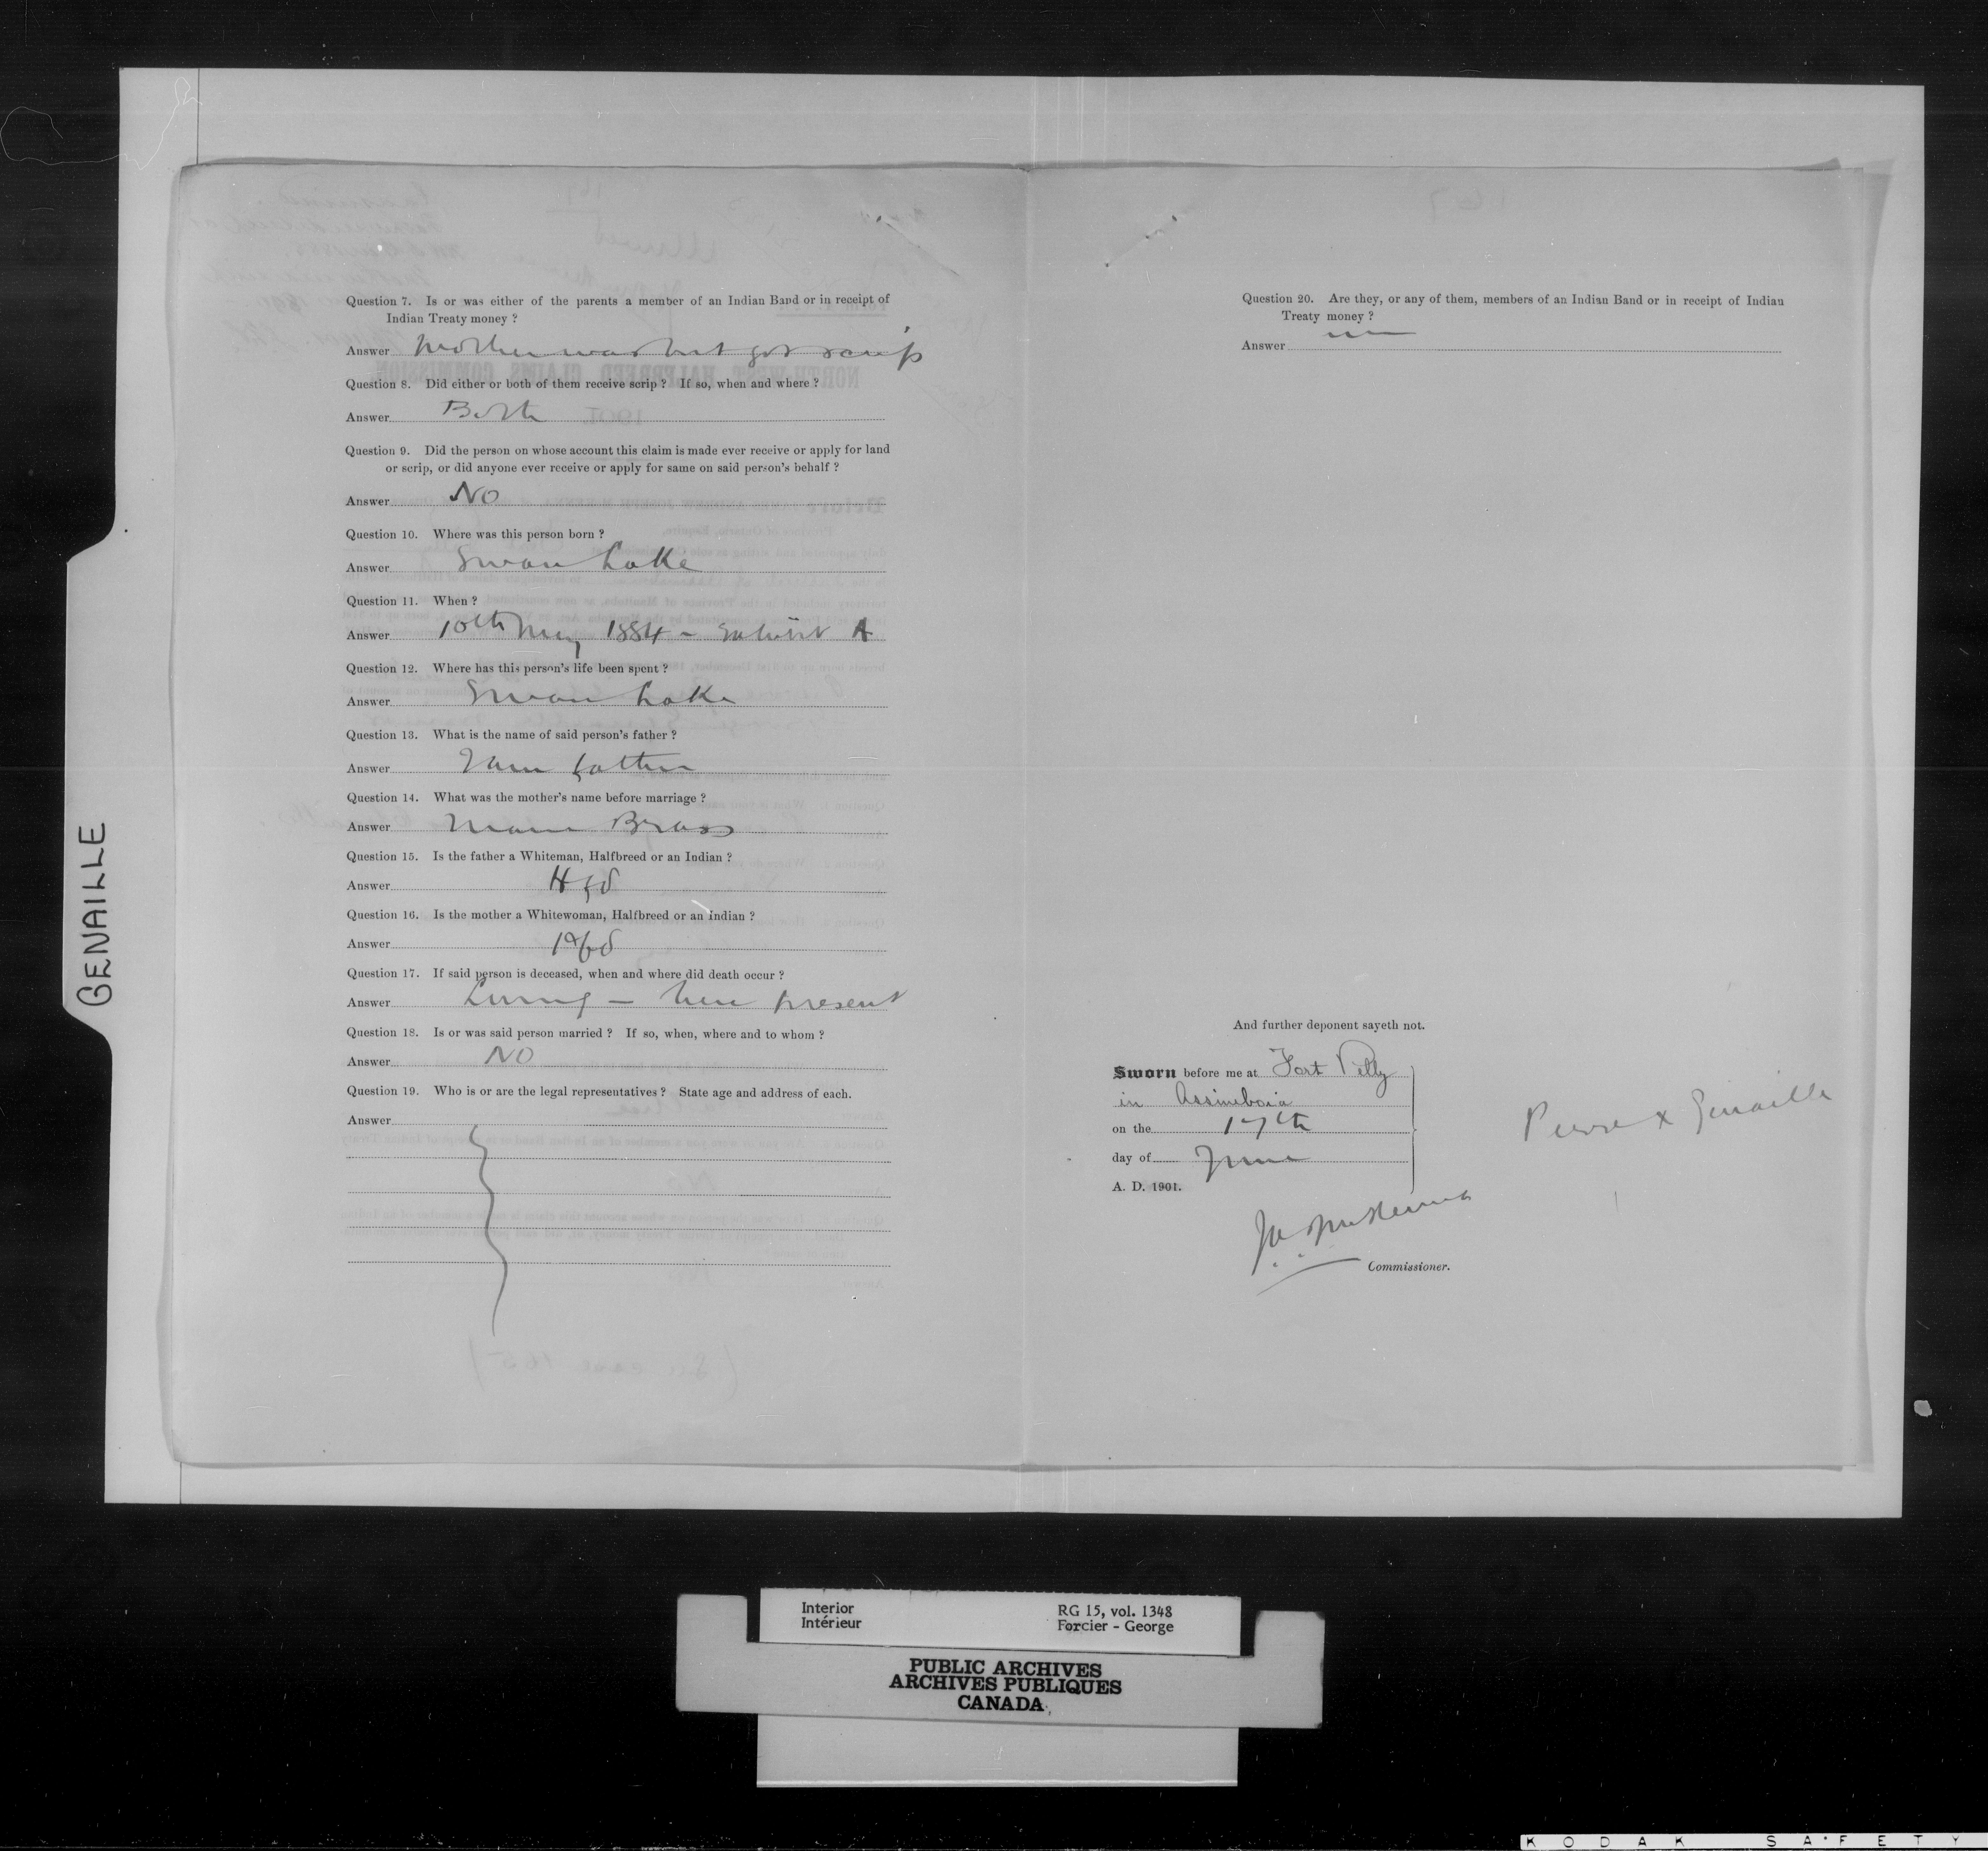 Question 7. Is or was either of the parents a member of an Indian Band or in receipt of
Indian Treaty money ?
Answer Mother was but got scrip
Question 8. Did either or both of them receive scrip ? If so, when and where ?
Answer Both
Question 9. Did the person on whose account this claim is made ever receive or apply for land
or scrip, or did anyone ever receive or apply for same on said person's behalf ?
Answer No
Question 10. Where was this person born ?
Answer Swan Lake
Question 11. When ?
Answer 10th May 1884 - Exhibit A
Question 12. Where has this person's life been spent ?
Answer Swan Lake
Question 13. What is the name of said person's father ?
Answer I am father
Question 14. What was the mother's name before marriage ?
Answer Brass
Question 15. Is the father a Whiteman, Halfbreed or an Indian ?
Answer Hfbd
Question 16. Is the mother a Whitewoman, Halfbreed or an Indian ?
Answer Hfbd
Question 17. If said person is deceased, when and where did death occur ?
Answer Living - here present
Question 18. Is or was said person married ? If so, when, where and to whom ?
Answer NO
Question 19. Who is or are the legal representatives ? State age and address of each.
Answer
Question 20. Are they, or any of them, members of an Indian Band or in receipt of Indian
Treaty money ?
Answer
And further deponent sayeth not.
Sworn before me at Fort Pelly
in Assiniboia
on the 17th
day of June
A. D. 1901.
Pierre x Genaille
Commissioner.
GENAILLE
Interior
Intérieur
RG 15, vol. 1348
Forcier - George
PUBLIC ARCHIVES
ARCHIVES PUBLIQUES
CANADA
KODAK SAFETY